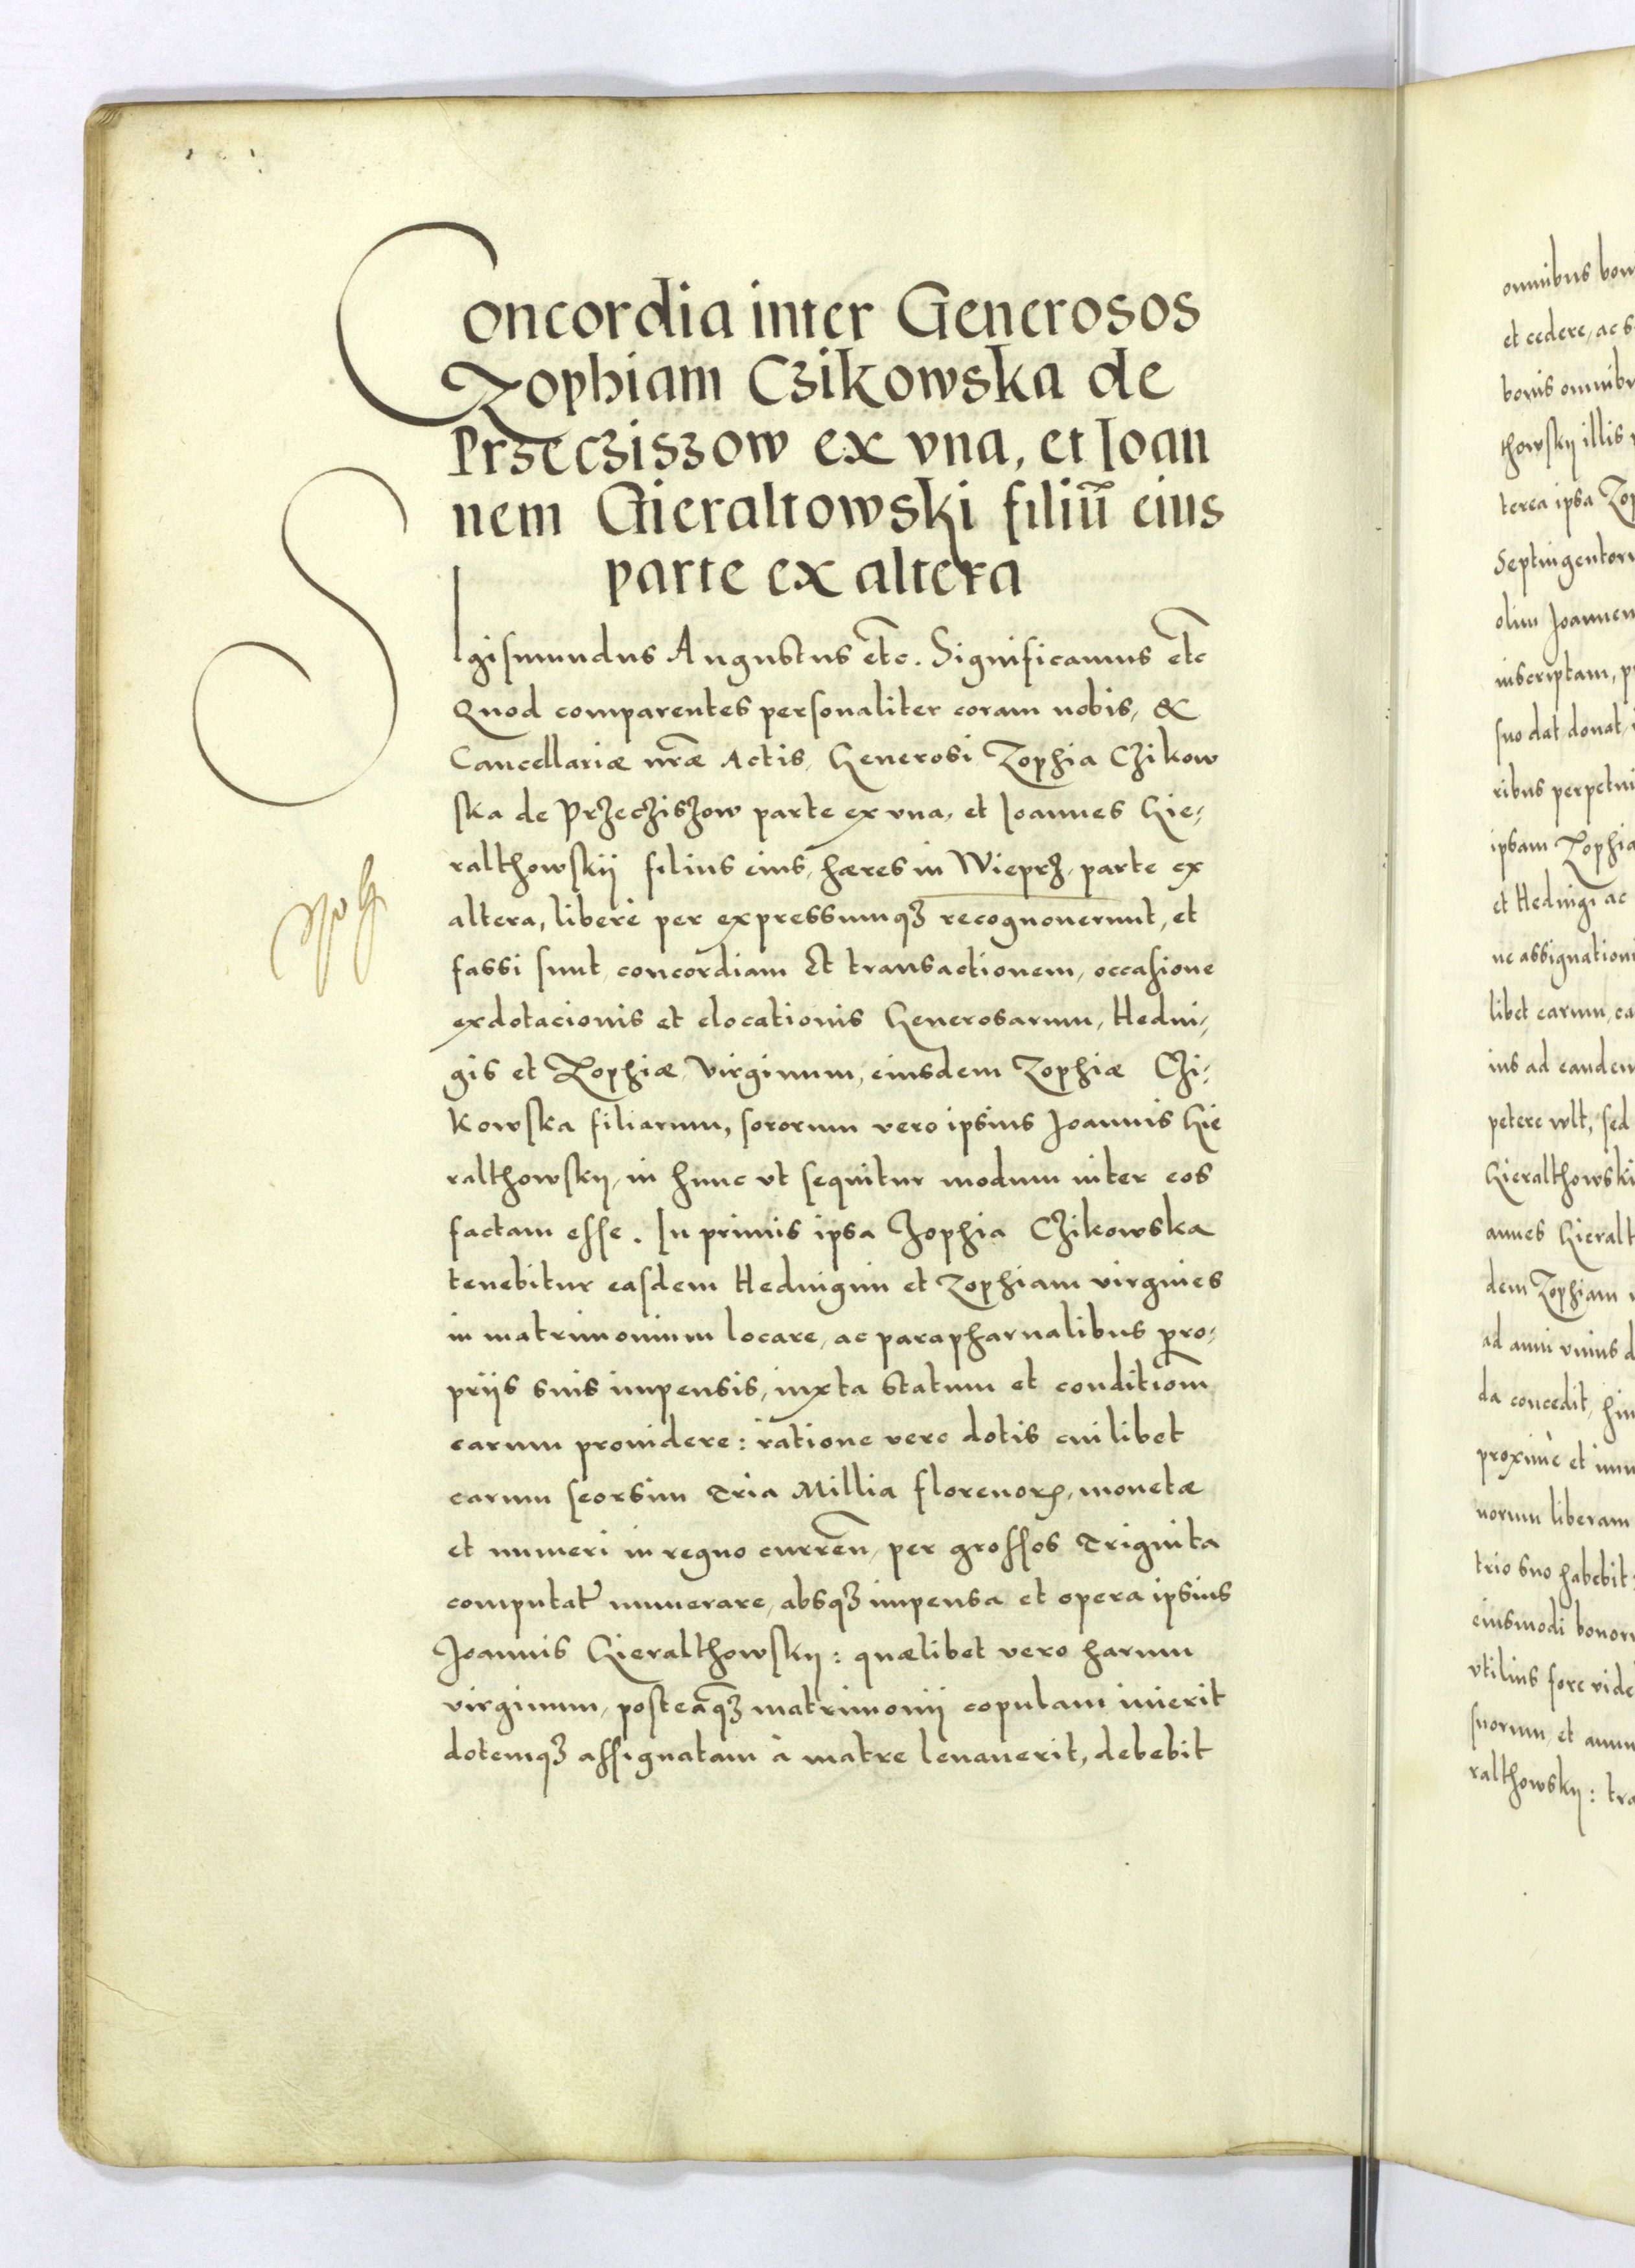 Concordia inter Generosos
Zophiam Czikowska de
Przecziszow ex vna, et Ioan
nem Gieraltowski filiũ eius
parte ex altera
SIgismundus Augustus etc. Significamus etc
Quod comparentes personaliter coram nobis, &
Cancellariæ nr̃æ Actis, Generosi Zophia Czikow
ska de Przecziszow parte ex vna, et Ioannes Gie,
ralthowskij filius eius, hæres in Wieprz, parte ex
altera, liberè per expressumqꝫ recognouerunt, et
fassi sunt, concordiam Et transactionem, occasione
exdotacionis et elocationis Generosarum, Hedui,
gis et Zophiæ, Virginum, eiusdem Zophiæ Czi,
kowska filiarum, sororum vero ipsius Joannis Gie
ralthowskij, in hunc vt sequitur modum inter eos
factam esse. In primis ipsa Zophia Czikowska
tenebitur easdem Heduigim et Zophiam virgines
in matrimonium locare, ac parapharnalibus pro,
priis suis impensis, iuxta statum et conditiom̃
earum prouidere: ratione vero dotis cuilibet
earum seorsim Tria Millia florenoꝝ, monetæ
et numeri in regno curreñ, per grossos Triginta
computat̃ numerare, absqꝫ impensa et opera ipsius
Joannis Gieralthowskij: quælibet vero harum
virginum, posteaqꝫ matrimonij copulam inierit
dotemqꝫ assignatam à matre leuauerit, debebit
omnibus bon
et cedere, ac s
bonis omnibu
thowskij illis
terea ipsa Zop
Septingentoru
olim Joannem
inscriptam, p
suo dat donat,
ribus perpetui
ipsam Zophia
et Heduigi ac
ne assignationi
libet earum, ea
ius ad eandem
petere wlt, sed
Gieralthowski
annes Gieralt
dem Zophiam
ad anni vnius d
da concedit, hin
proximè et imm
norum liberam
trio suo habebit:
eiusmodi bonoru
vtilius fore vide
suorum, et annu
ralthowskij: tra